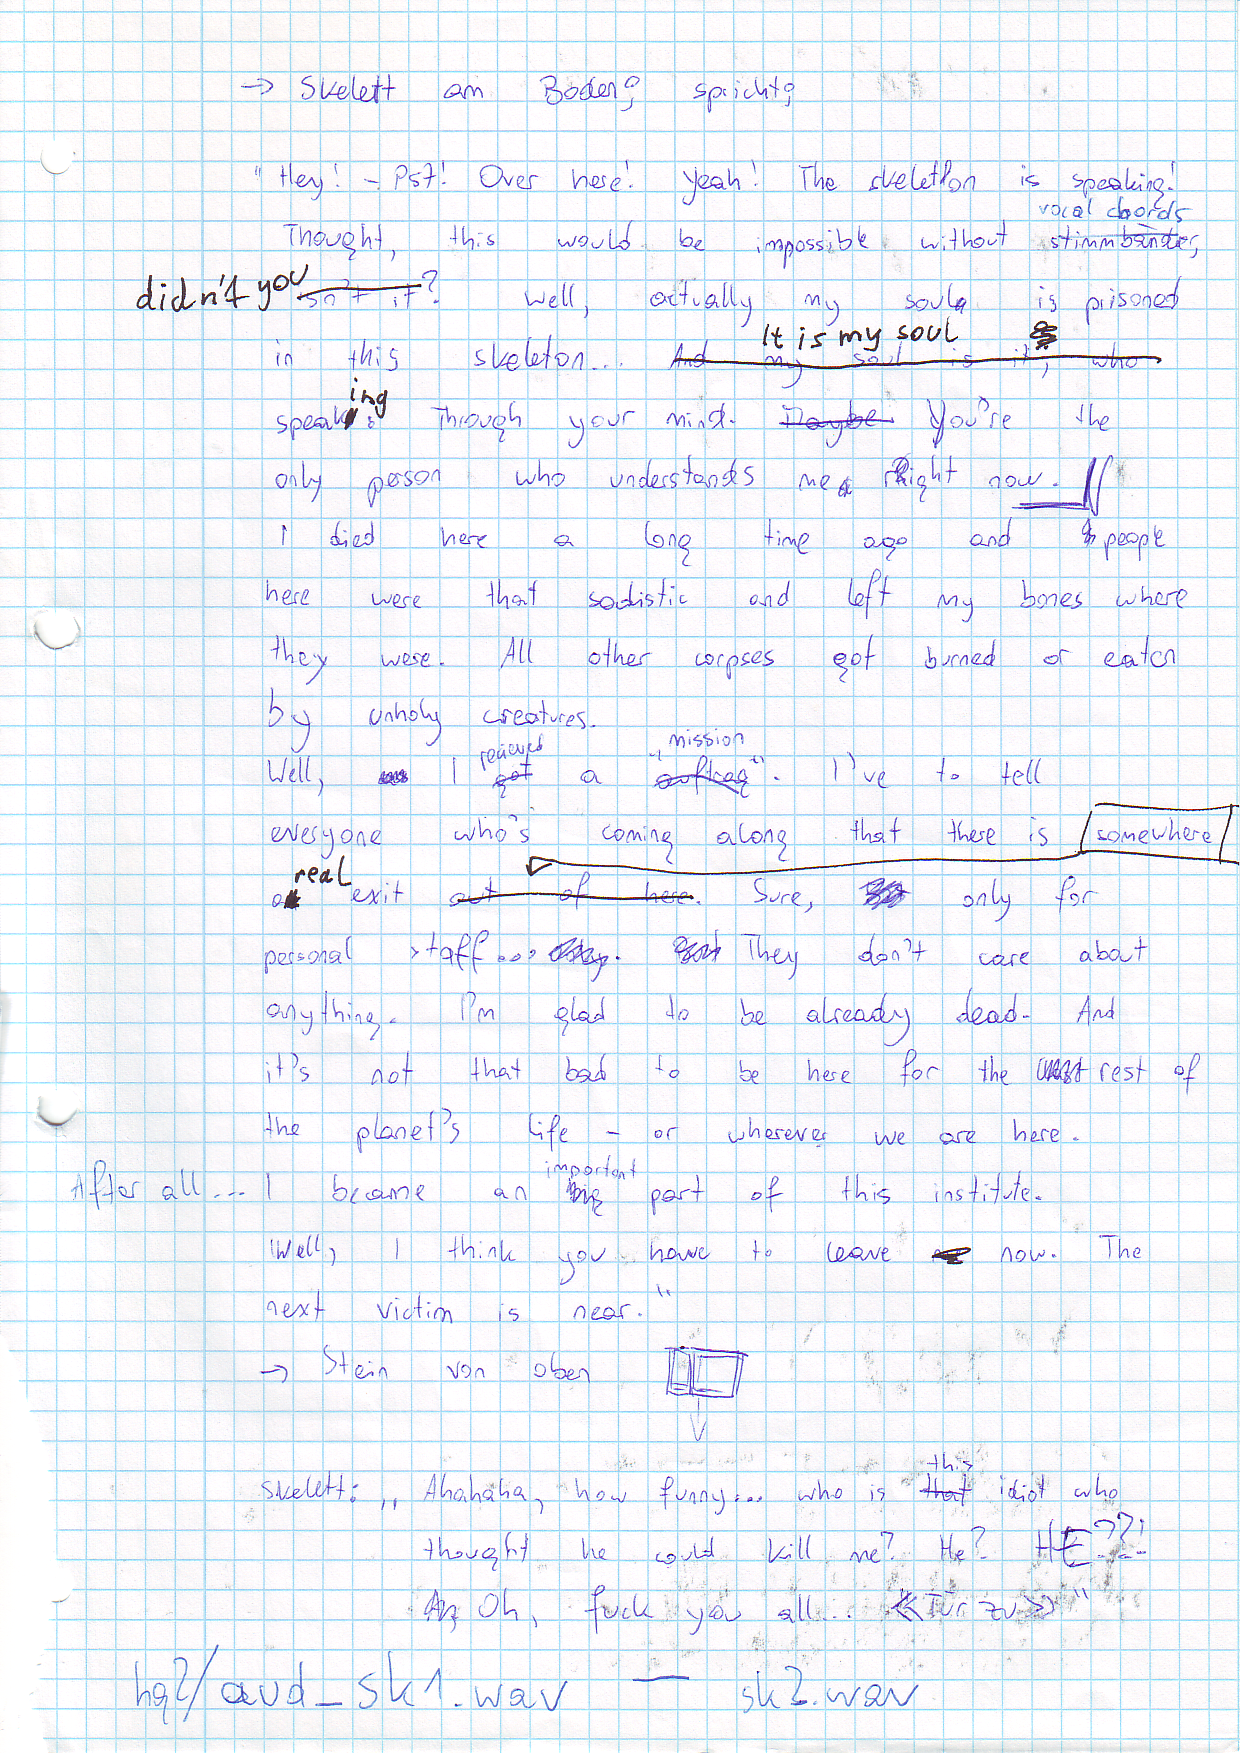 → Skelett am Boden; spricht;
"Hey! - Pst! Over here! Yeah! The skeletton is speaking!
vocal chords
Thought, this would be impossible without stimmbänder,
didn't you sn't it? Well, actually my soul is prisoned
It is my soul
in this skeleton... And my soul is it, who
ing
speak: Through your mind. Maybe You're the
only person who understands me right now.
I died here a long time ago and people
here were that sadistic and left my bones where
they were. All other corpses got burned or eaten
by unholy creatures.
recieved "mission"
Well, I got a auftrag. I've to tell
everyone who's coming along that there is somewhere
real
a exit out of here. Sure, only for
personal staff... They don't care about
anything. I'm glad to be already dead. And
it's not that bad to be here for the rest of
the planet's life - or wherever we are here.
important
After all... I became an big part of this institute.
Well, I think you have to leave now. The
next victim is near."
→ Stein von oben
this
Skelett: „Ahahaha, how funny... who is that idiot who
thought he could kill me? He? HE??!
Oh, fuck you all... «Tür zu»"
hq2/aud_sk1.wav — sk2.wav